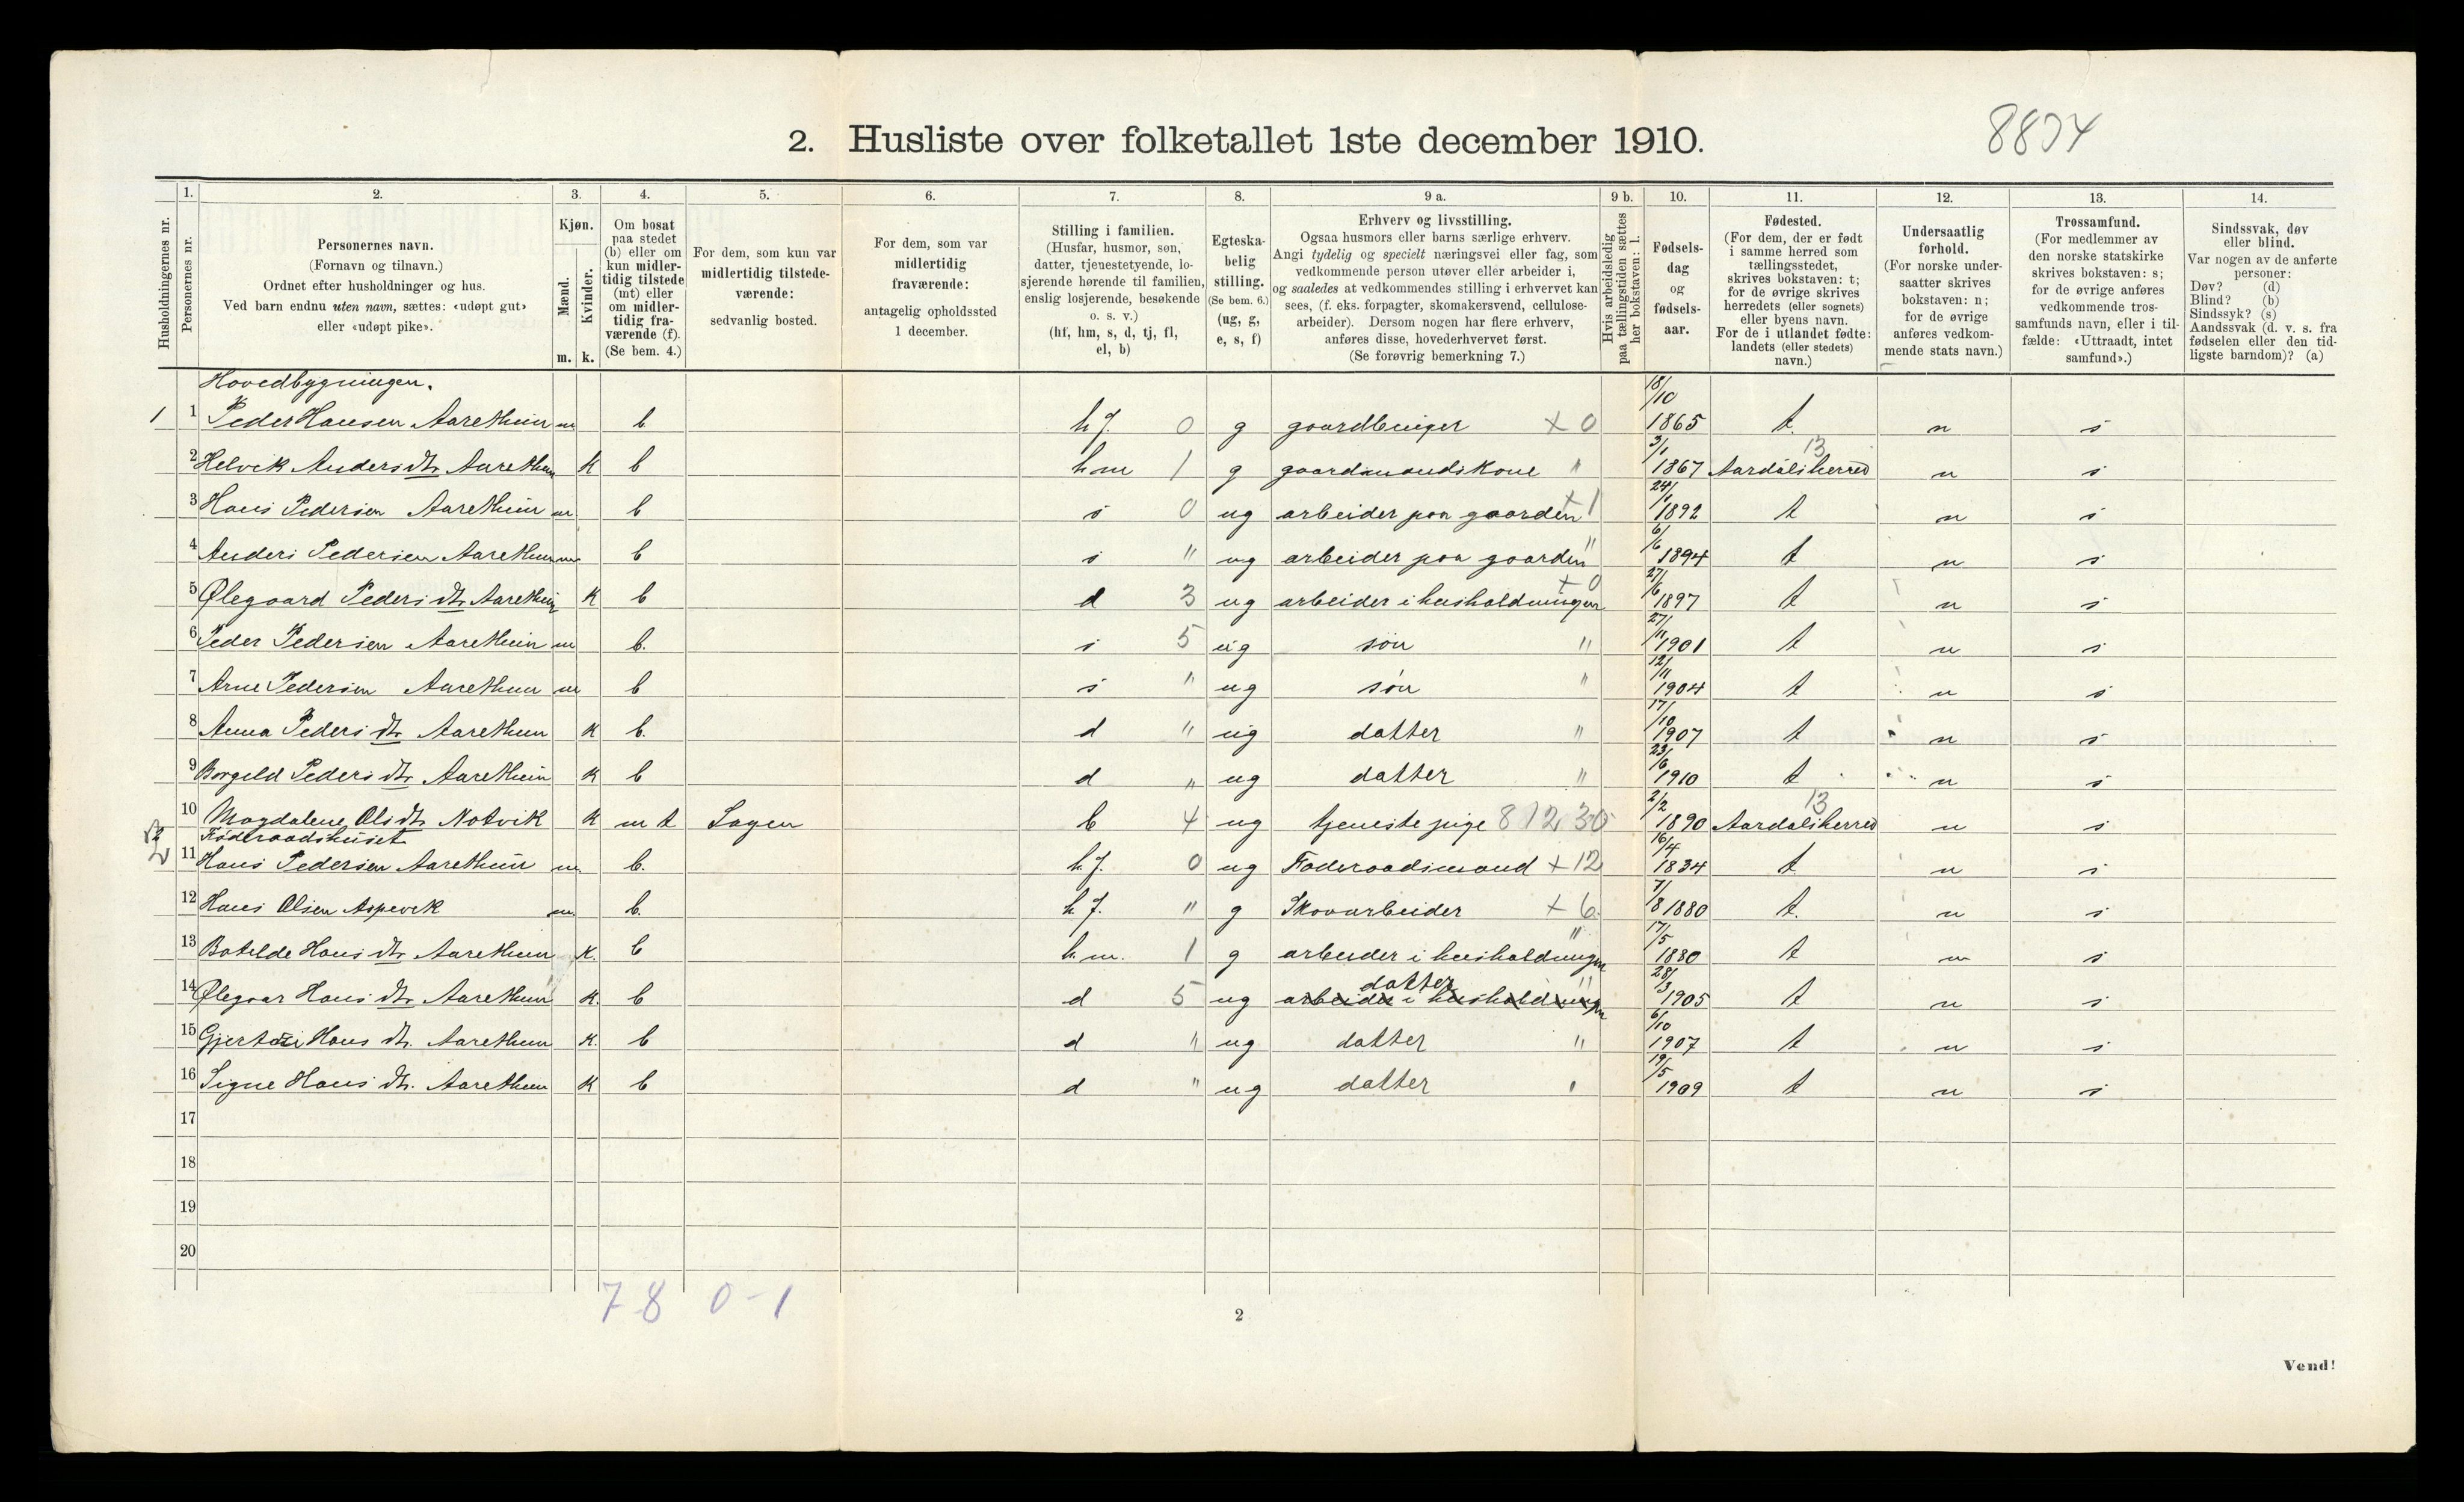 2. Husliste over folketallet 1ste december 1910.
8834
1. 2. 3. 4. 5. 6. 7. 8. 9 a. 9 b. 10. 11. 12. 13. 14.
Husholdningernes nr.
Personernes nr.
Personernes navn.
(Fornavn og tilnavn.)
Ordnet efter husholdninger og hus.
Ved barn endnu uten navn, sættes: «udøpt gut»
eller «udøpt pike».
Kjøn.
Mænd.
Kvinder.
m. k.
Om bosat
paa stedet
(b) eller om
kun midler-
tidig tilstede
(mt) eller
om midler-
tidig fra-
værende (f).
(Se bem. 4.)
For dem, som kun var
midlertidig tilstede-
værende:
sedvanlig bosted.
For dem, som var
midlertidig
fraværende:
antagelig opholdssted
1 december.
Stilling i familien.
(Husfar, husmor, søn,
datter, tjenestetyende, lo-
sjerende hørende til familien,
enslig losjerende, besøkende
o. s. v.)
(hf, hm, s, d, tj, fl,
el, b)
Egteska-
belig
stilling.
(Se bem. 6.)
(ug, g,
e, s, f)
Erhverv og livsstilling.
Ogsaa husmors eller barns særlige erhverv.
Angi tydelig og specielt næringsvei eller fag, som
vedkommende person utøver eller arbeider i,
og saaledes at vedkommendes stilling i erhvervet kan
sees, (f. eks. forpagter, skomakersvend, cellulose-
arbeider). Dersom nogen har flere erhverv,
anføres disse, hovederhvervet først.
(Se forøvrig bemerkning 7.)
Hvis arbeidsledig
paa tællingstiden sættes
her bokstaven: l.
Fødsels-
dag
og
fødsels-
aar.
Fødested.
(For dem, der er født
i samme herred som
tællingsstedet,
skrives bokstaven: t;
for de øvrige skrives
herredets (eller sognets)
eller byens navn.
For de i utlandet fødte:
landets (eller stedets)
navn.)
Undersaatlig
forhold.
(For norske under-
saatter skrives
bokstaven: n;
for de øvrige
anføres vedkom-
mende stats navn.)
Trossamfund.
(For medlemmer av
den norske statskirke
skrives bokstaven: s;
for de øvrige anføres
vedkommende tros-
samfunds navn, eller i til-
fælde: «Uttraadt, intet
samfund».)
Sindssvak, døv
eller blind.
Var nogen av de anførte
personer:
Døv? (d)
Blind? (b)
Sindssyk? (s)
Aandssvak (d. v. s. fra
fødselen eller den tid-
ligste barndom)? (a)
Hovedbygningen.
1 1 Peder Hansen Aarethun m b hf. 0 g gaardbruger + 0 18/10 1865 t. n s
2 Helvik Andersdtr Aarethun k b hm 1 g gaardmandskone " 3/1 1867 Aardalsherred 13 n s
3 Hans Pedersen Aarethun m b s 0 ug arbeider paa gaarden + 1 24/1 1892 t n s
4 Anders Pedersen Aarethun m b s " ug arbeider paa gaarden " 6/6 1894 t n s
5 Ølegaard Pedersdtr Aarethun k b d 3 ug arbeider i husholdningen + 0 27/6 1897 t n s
6 Peder Pedersen Aarethun m b. s 5 ug søn " 27/11 1901 t n s
7 Arne Pedersen Aarethun m b s " ug søn " 12/11 1904 t n s
8 Anna Pedersdtr Aarethun k b. d " ug datter " 17/10 1907 t n s
9 Borgeld Pedersdtr Aarethun k b d " ug datter " 23/6 1910 t n s
10 Magdalene Olsdtr Natvik k mt b 4 ug tjenestepige 812 30 2/2 1890 Aardalsherred 13 n s
Føderaadshuset
2 11 Hans Pedersen Aarethun m. b. hf. 0 ug Føderaadsmand + 12 16/4 1834 t n s
12 Hans Olsen Aspevik m. b. hf. " g Skovarbeider + 6. 7/8 1880 t. n s
13 Botilde Hansdtr Aarethun k. b hm. 1 g arbeider i husholdningen " 17/5 1880 t n s
14 Ølegaar Hansdtr Aarethun k. b d 5 ug arbeider i husholdningen datter " 28/3 1905 t n s
15 Hans dtr. Aarethun k. b d " ug datter " 6/10 1907 t n s
16 Signe Hans dtr. Aarethun k b d " ug datter " 19/5 1909 t n s
17
18
19
20
7-8 0-1
2
Vend!